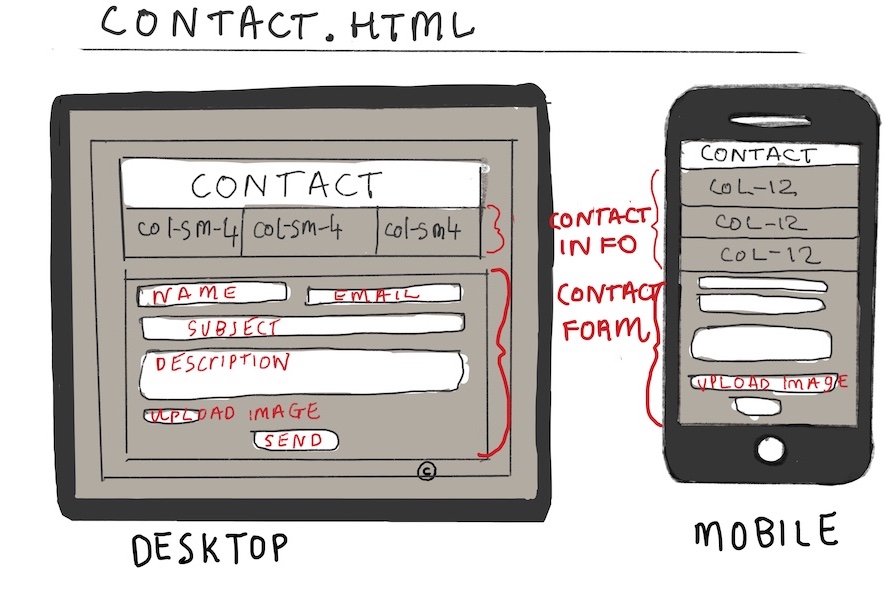 CONTACT.HTML
CONTACT
COl-Sm-4 COl-Sm-4 COl-Sm4
NAME EMAIL
SUBJECT
DESCRIPTION
UPLOAD IMAGE
SEND
©
DESKTOP
CONTACT
INFO
CONTACT
FORM
CONTACT
COL-12
COL-12
COL-12
UPLOAD IMAGE
MOBILE